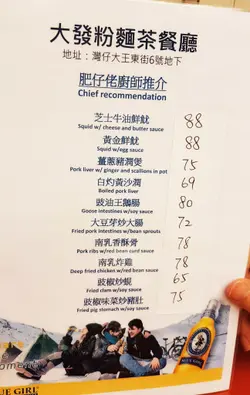 大發粉麵茶餐廳
地址：灣仔大王東街6號地下
肥仔佬廚師推介
Chief recommendation
芝士牛油鮮魷 88
Squid w/ cheese and butter sauce
黃金鮮魷 88
Squid w/egg sauce
薑蔥豬潤煲 75
Pork liver w/ ginger and scallions in pot
白灼黃沙潤 69
Boiled pork liver
豉油王鵝腸 80
Goose intestines w/soy sauce
大豆芽炒大腸 72
Fried pork intestines w/bean sprouts
南乳香酥骨 78
Pork ribs w/red bean curd sauce
南乳炸雞 78
Deep fried chicken w/red bean sauce
豉椒炒蜆 65
Fried clam w/soy sauce
豉椒味菜炒豬肚 75
Fried pig stomach w/soy sauce
UE GIRL